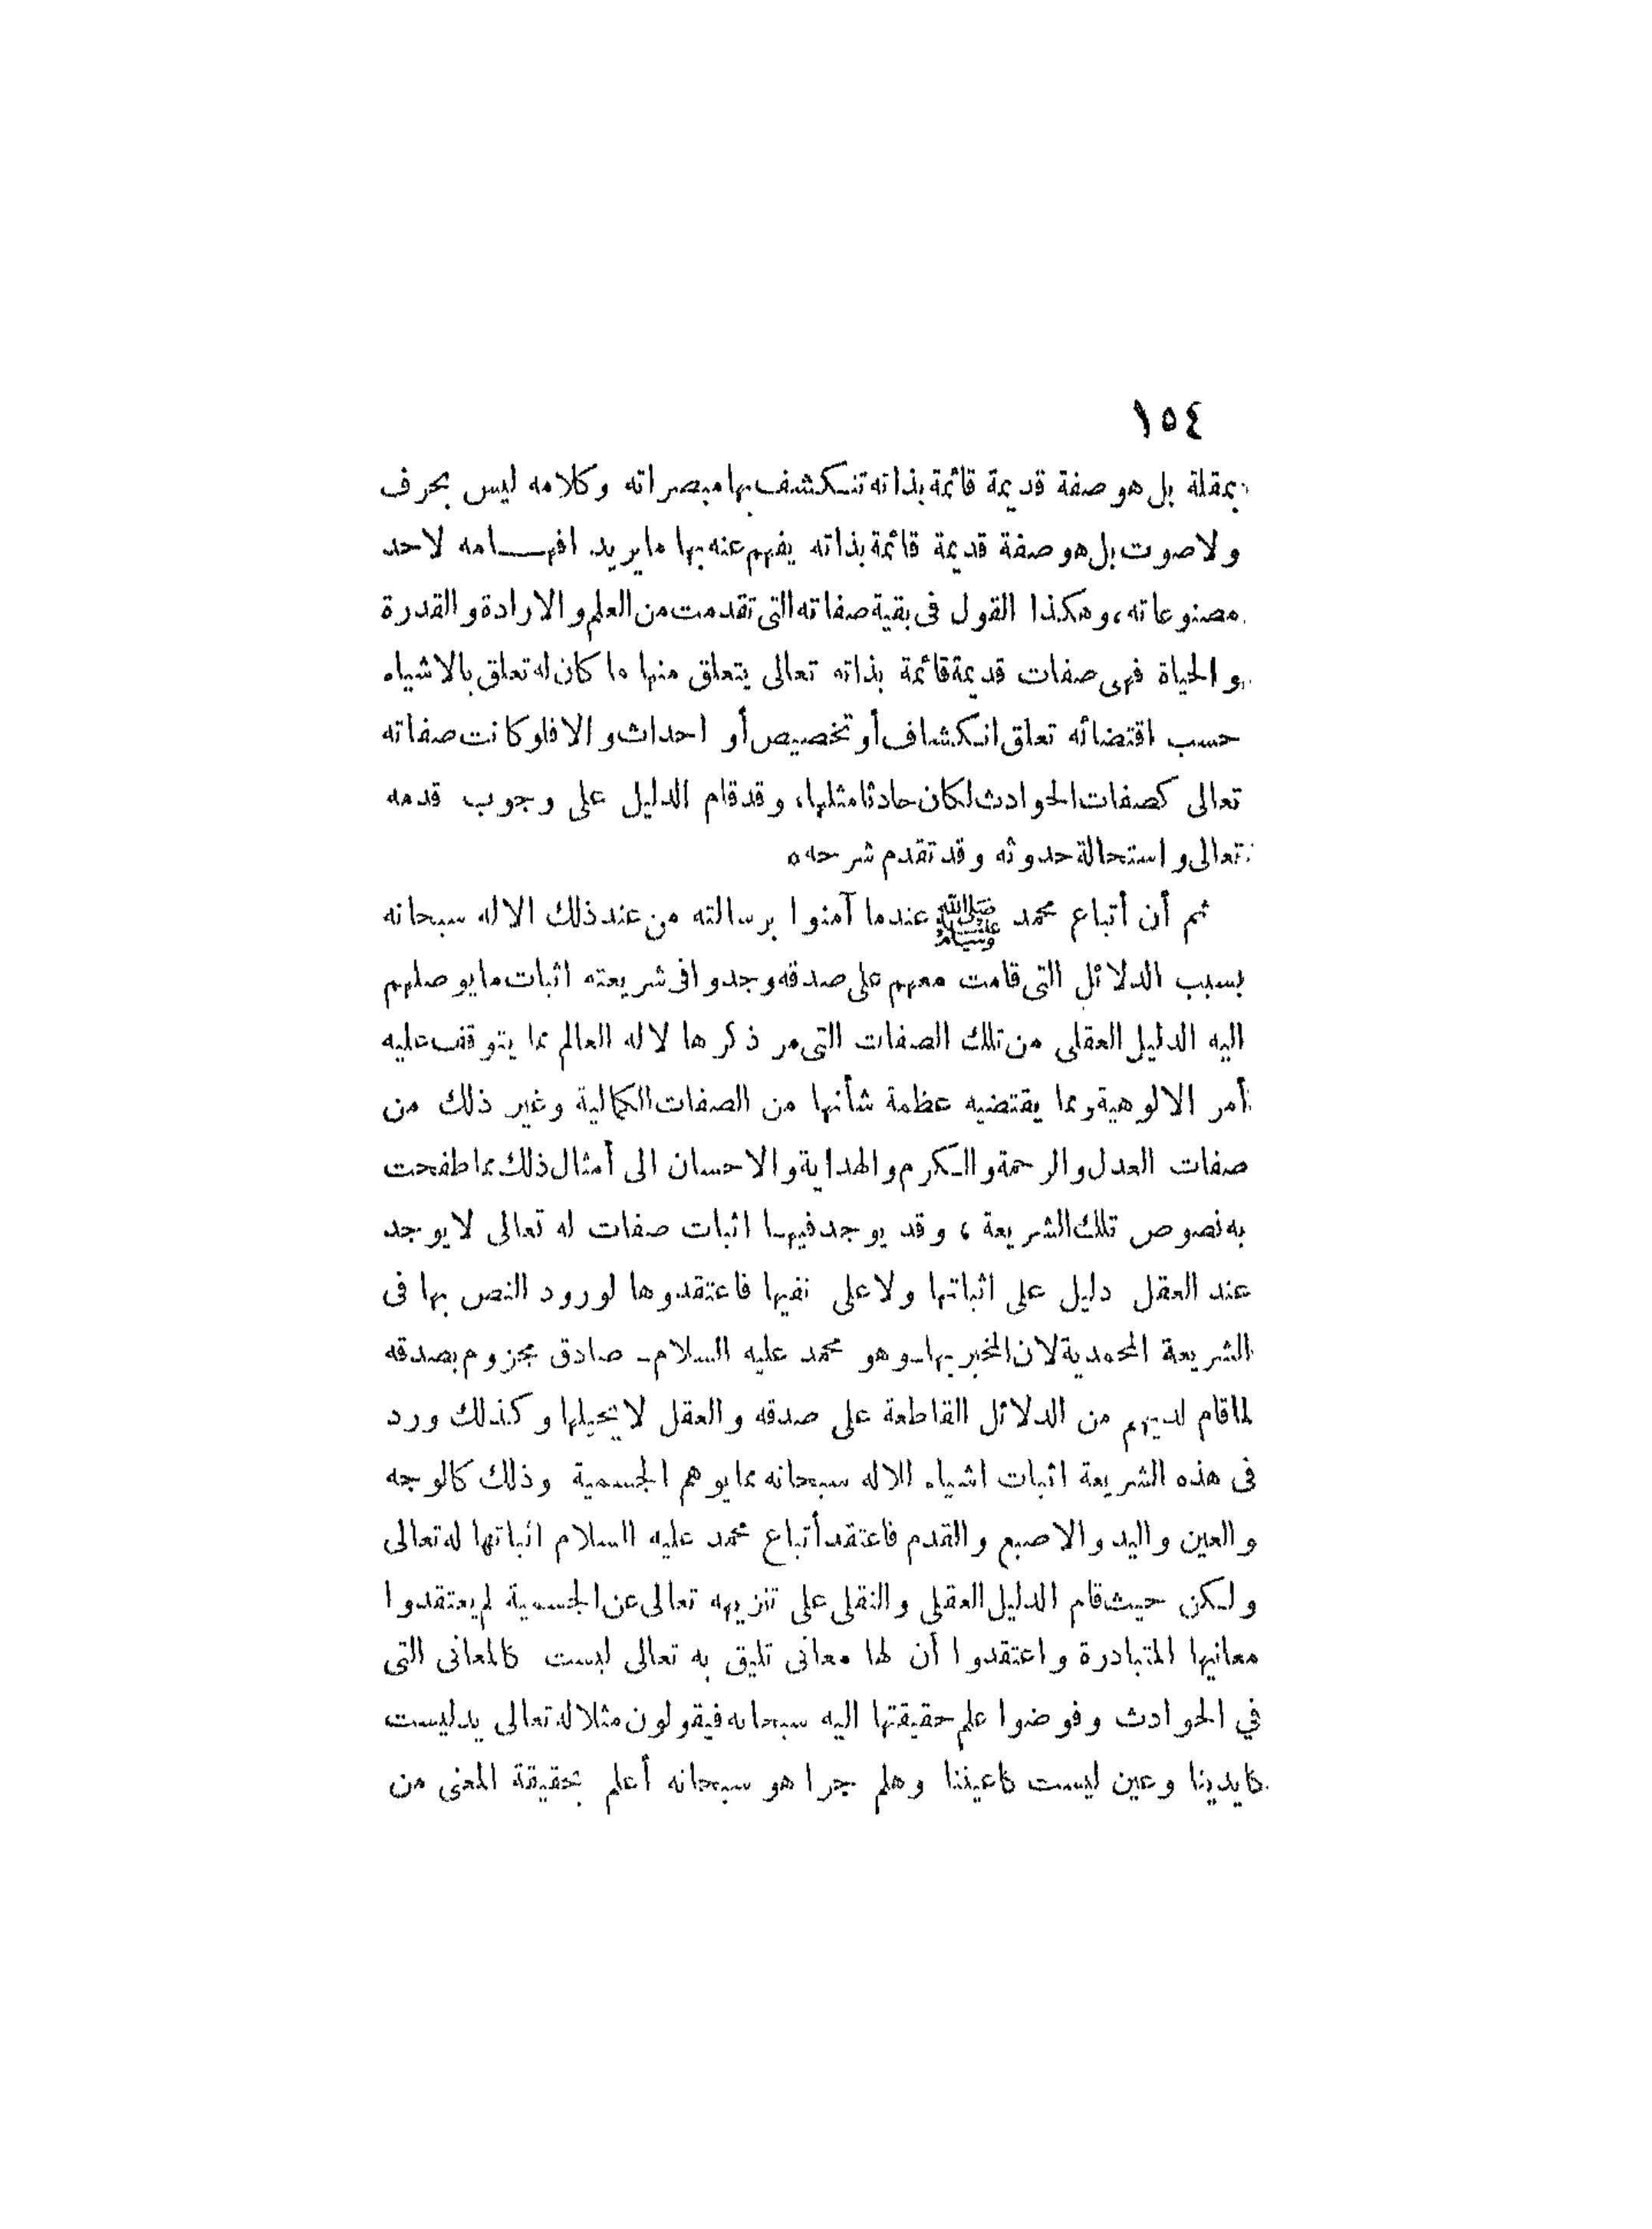 ١٥٤
بمقلة بل هو صفة قديمة قائمة بذاته تنكشف بها مبصراته وكلامه ليس بحرف
ولا صوت بل هو صفة قديمة قائمة بذاته يفهم عنه بها ما يريد افهامه لاحد
مصنوعاته، وهكذا القول فى بقية صفاته التى تقدمت من العلم والارادة والقدرة
والحياة فهى صفات قديمة قائمة بذاته تعالى يتعلق منها ما كان له تعلق بالاشياء
حسب اقتضائه تعلق انكشاف أو تخصيص أو احداث والا فلو كانت صفاته
تعالى كصفات الحوادث لكان حادثا مثلها، وقد قام الدليل على وجوب قدمه
تعالى واستحالة حدوثه وقد تقدم شرحه ه
ثم أن أتباع محمد ﷺ عندما آمنوا برسالته من عند ذلك الاله سبحانه
بسبب الدلائل التى قامت معهم على صدقه وجدوا فى شريعته اثبات ما يوصلهم
اليه الدليل العقلى من تلك الصفات التى مر ذكرها لاله العالم مما يتوقف عليه
أمر الالوهية ومما يقتضيه عظمة شأنها من الصفات الكمالية وغير ذلك من
صفات العدل والرحمة والكرم والهداية والاحسان الى أمثال ذلك مما طفحت
به نصوص تلك الشريعة ، وقد يوجد فيها اثبات صفات له تعالى لا يوجد
عند العقل دليل على اثباتها ولا على نفيها فاعتقدوها لورود النص بها فى
الشريعة المحمدية لان المخبر بها ـ وهو محمد عليه السلام ـ صادق مجزوم بصدقه
لما قام لديهم من الدلائل القاطعة على صدقه والعقل لا يحيلها وكذلك ورد
فى هذه الشريعة اثبات اشياء للاله سبحانه مما يوهم الجسمية وذلك كالوجه
والعين واليد والاصبع والقدم فاعتقد أتباع محمد عليه السلام اثباتها له تعالى
ولكن حيث قام الدليل العقلى والنقلى على تنزيهه تعالى عن الجسمية لم يعتقدوا
معانيها المتبادرة واعتقدوا أن لها معانى تليق به تعالى ليست كالمعانى التى
في الحوادث وفوضوا علم حقيقتها اليه سبحانه فيقولون مثلا له تعالى يد ليست
كايدينا وعين ليست كاعيننا وهلم جرا هو سبحانه أعلم بحقيقة المعنى من